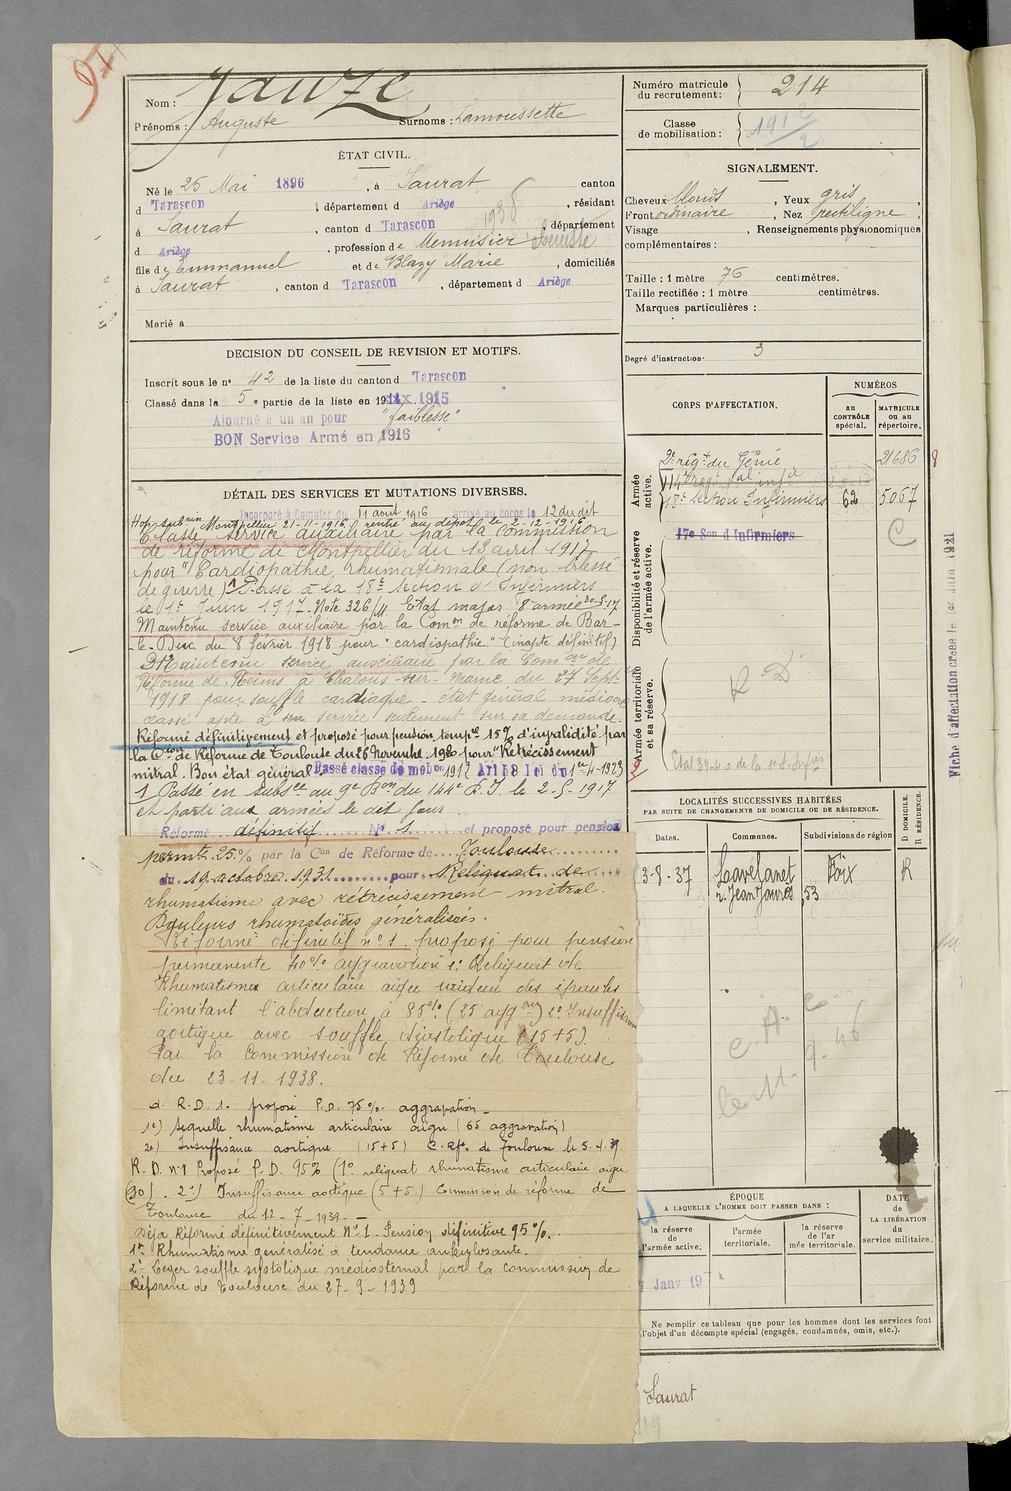 97
Nom : Jauze
Prénoms : Auguste Surnoms : Lamoussette
ÉTAT CIVIL.
Né le 25 Mai 1896, à Saurat canton
d Tarascon, département d Ariège, résidant
à Saurat, canton d Tarascon, département
1938
d Ariège, profession de Menuisier
fils de Emmanuel et de Blazy Marie, domiciliés
à Saurat, canton d Tarascon, département d Ariège
Marié à
DECISION DU CONSEIL DE REVISION ET MOTIFS.
Inscrit sous le n° 42 de la liste du canton d Tarascon
Classé dans la 5e partie de la liste en 1915
Ajourné à un an pour "faiblesse"
BON Service Armé en 1916
DÉTAIL DES SERVICES ET MUTATIONS DIVERSES.
Incorporé à compter du 11 août 1916 arrivé au corps le 12 du dit
Montpellier 21-11-1916, rentré au dépôt le 2-12-1916
Classé service auxiliaire par la commission
de réforme de Montpellier du 13 avril 1917
pour "Cardiopathie rhumatismale (non blessé
de guerre) Passé à la 18e section d'Infirmiers
le 1er Juin 1917. Note 326/11 Etat major 8e armée 30-5-17
Maintenu service auxiliaire par la Comon de réforme de Bar-
-le-Duc du 8 février 1918 pour "cardiopathie" (inapte définitif)
Maintenu service auxiliaire par la Comon de
Réforme de Reims à Chalons-sur-Marne du 27 Sept.
1918 pour souffle cardiaque - état général médiocre
classé apte à son service seulement sur sa demande.
Réformé définitivement et proposé pour pension tempre 15% d'invalidité par
la Con de Réforme de Toulouse du 26 Novembre 1920 pour "Rétrécissement
mitral. Bon état général Passé classe de mobon 1912 Art 58 Loi du 1er-4-1923
1 Passé en subsce au 9e Bon du 144e R.I. le 2-5-1917
et parti aux armées le dit jour
Réformé définitif N° 1 et proposé pour pension
permte 25% par la Con de Réforme de Toulouse
du 19 octobre 1931 pour Reliquat de
rhumatisme avec rétrécissement mitral.
Douleurs rhumatoïdes généralisées.
Réformé définitif n° 1. proposé pour pension
permanente 40% aggravation 1° Reliquat de
Rhumatisme articulaire aigu raideur des épaules
limitant l'abduction à 85% (25 aggon) 2° Insuffisance
aortique avec souffle diastolique (15+5)
Par la Commission de Réforme de Toulouse
du 23-11-1938.
d. R.D. 1. proposé P.D. 75% aggravation -
1°) Sequelle rhumatisme articulaire aigu (65 aggravation)
2°) Insuffisance aortique (15+5) C. Rfe de Toulouse le 5.4.39
R.D. n°1 Proposé P.D. 95% (1° reliquat rhumatisme articulaire aigu
(90). 2°) Insuffisance aortique (5+5.) Commission de réforme de
Toulouse du 12-7-1939.-
Déja Réformé définitivement N° 1. Pension définitive 95%.
1° Rhumatisme généralisé à tendance ankylosante.
2° Léger souffle systolique médiosternal par la commission de
Réforme de Toulouse du 27-9-1939
Numéro matricule du recrutement : 214
Classe de mobilisation : 1912/2
SIGNALEMENT.
Cheveux blonds, Yeux gris,
Front ordinaire, Nez rectiligne,
Visage, Renseignements physionomiques
complémentaires :
Taille : 1 mètre 76 centimètres.
Taille rectifiée : 1 mètre centimètres.
Marques particulières :
Degré d'instruction 3
CORPS D'AFFECTATION.
NUMÉROS
AU CONTRÔLE spécial.
MATRICULE ou au répertoire.
Armée active.
2e régt du Génie 21686
8
18e Section Infirmiers 62 5067
Disponibilité et réserve de l'armée active.
17e Son d Infirmiers
C
Armée territoriale et sa réserve.
R D
LOCALITÉS SUCCESSIVES HABITÉES
PAR SUITE DE CHANGEMENTS DE DOMICILE OU DE RÉSIDENCE.
Dates. Communes. Subdivisions de région
D DOMICILE. R RÉSIDENCE.
3-8-37 Lavelanet Foix R
r. Jean Jaurès, 53
ÉPOQUE
A LAQUELLE L'HOMME DOIT PASSER DANS :
la réserve de l'armée active.
l'armée territoriale.
la réserve de l'armée territoriale.
DATE de LA LIBÉRATION du service militaire.
Janv 19
Ne remplir ce tableau que pour les hommes dont les services font
l'objet d'un décompte spécial (engagés, condamnés, omis, etc.).
Saurat
Fiche d'affectation créée le 1er Juin 1921